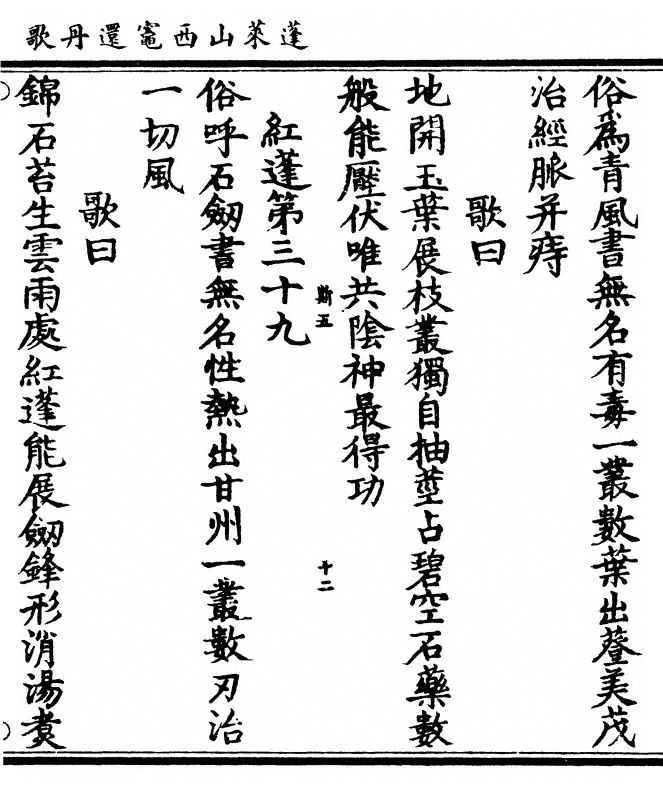 蓬萊山西竈還丹歌
俗為青風書無名有毒一叢數葉出䔲美茂
治經脈并痔
歌曰
地開玉葉展枝叢獨自抽莖占碧空石藥數
般能壓伏唯共陰神最得功
斯五
十二
紅蓬第三十九
俗呼石劔書無名性熱出甘州一叢數刃治
一切風
歌曰
錦石苔生雲雨處紅蓬能展劔鋒形消湯煑